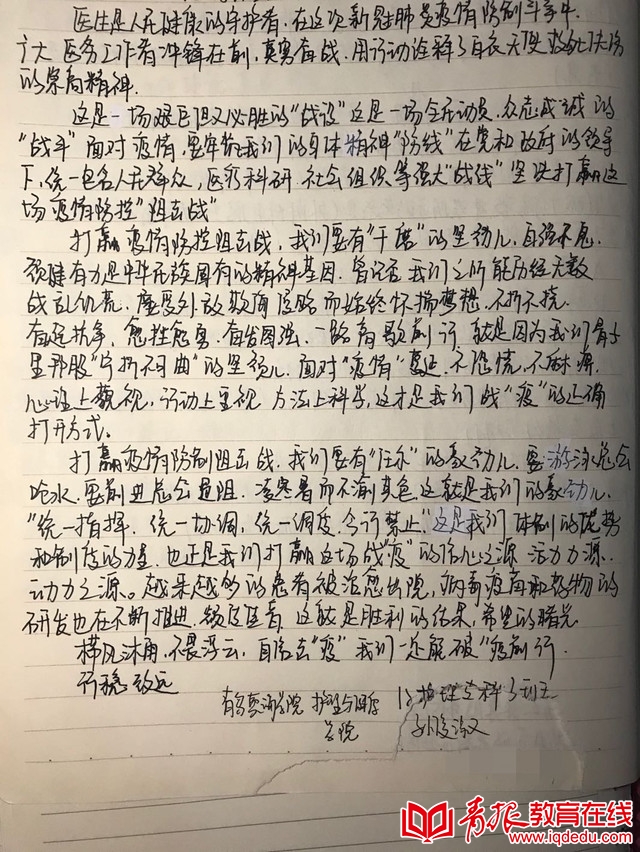 医生是人民健康的守护者,在这次新冠肺炎疫情防制斗争中,
广大医务工作者冲锋在前,英勇奋战,用行动诠释了白衣天使救死扶伤
的崇高精神.
这是一场艰巨但又必胜的“战役”这是一场全民动员,众志成城的
“战斗”面对疫情,要牢筑我们的身体精神“防线”在党和政府的领导
下,统一包名人民群众,医疗科研 社会组织等强大“战线”坚决打赢这
场疫情防控“阻击战”
打赢疫情防控阻击战,我们要有“千磨”的坚劲儿,自强不息,
刚健有力是中华民族固有的精神基因,曾记否我们之所能历经无数
战乱饥荒,磨恶外敌欺侮 而始终怀揣梦想,不折不挠,
奋起抗争,愈挫愈勇,奋发图强,一路高歌前行 就是因为我们骨子
里那股“宁折不曲”的坚韧儿,面对“疫情”蔓延,不恐慌,不麻痹,
心理上藐视,行动上重视 方法上科学,这才是我们战“疫”的正确
打开方式。
打赢疫情防制阻击战,我们要有“任尔”的豪劲儿,要游泳总会
呛水,要前进总会遇阻,凌寒暑而不渝其色 这就是我们的豪劲儿,
“统一指挥,统一协调,统一调度,令行禁止”这是我们体制的优势
和制度的力量,也正是我们打赢这场战“疫”的信心之源 活力力源,
动力之源。越来越多的患者被治愈出院,病毒疫苗和药物的
研发也在不断推进,频传佳音,这就是胜利的结果,希望的曙光
栉风沐雨,不畏浮云,自信去“疫”我们一定能破“疫”前行,
行稳致远
青岛 学院 护理与
学院
护理专科
青报教育在线
www.iqdedu.com